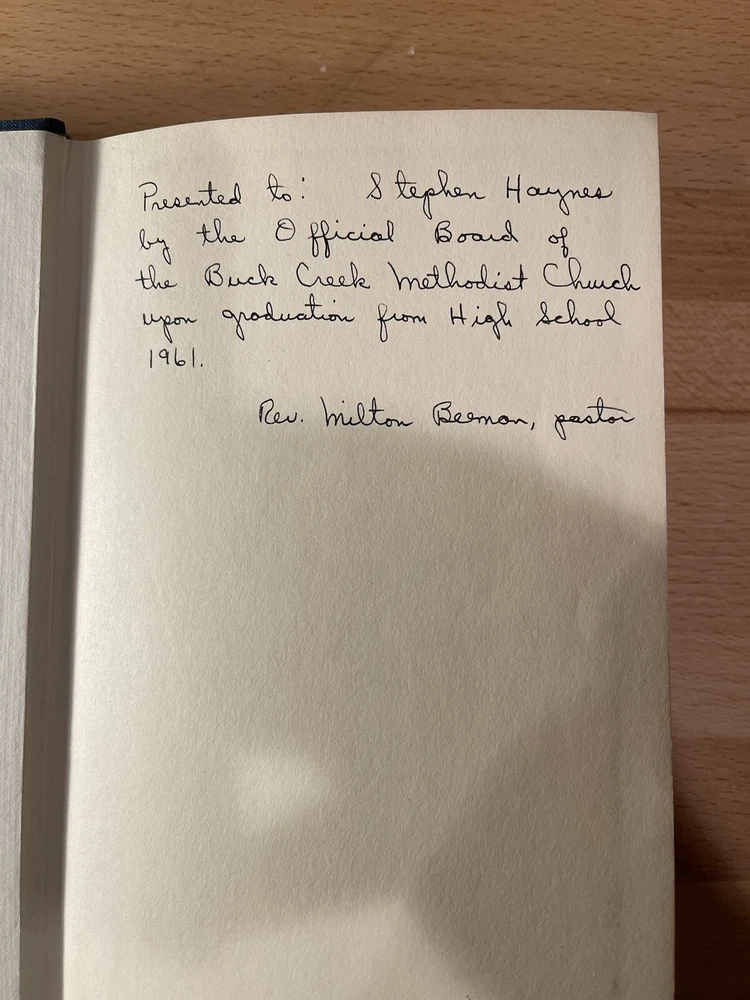 Presented to: Stephen Haynes
by the Official Board of
the Buck Creek Methodist Church
upon graduation from High School
1961.
Rev. Milton Beeman, pastor